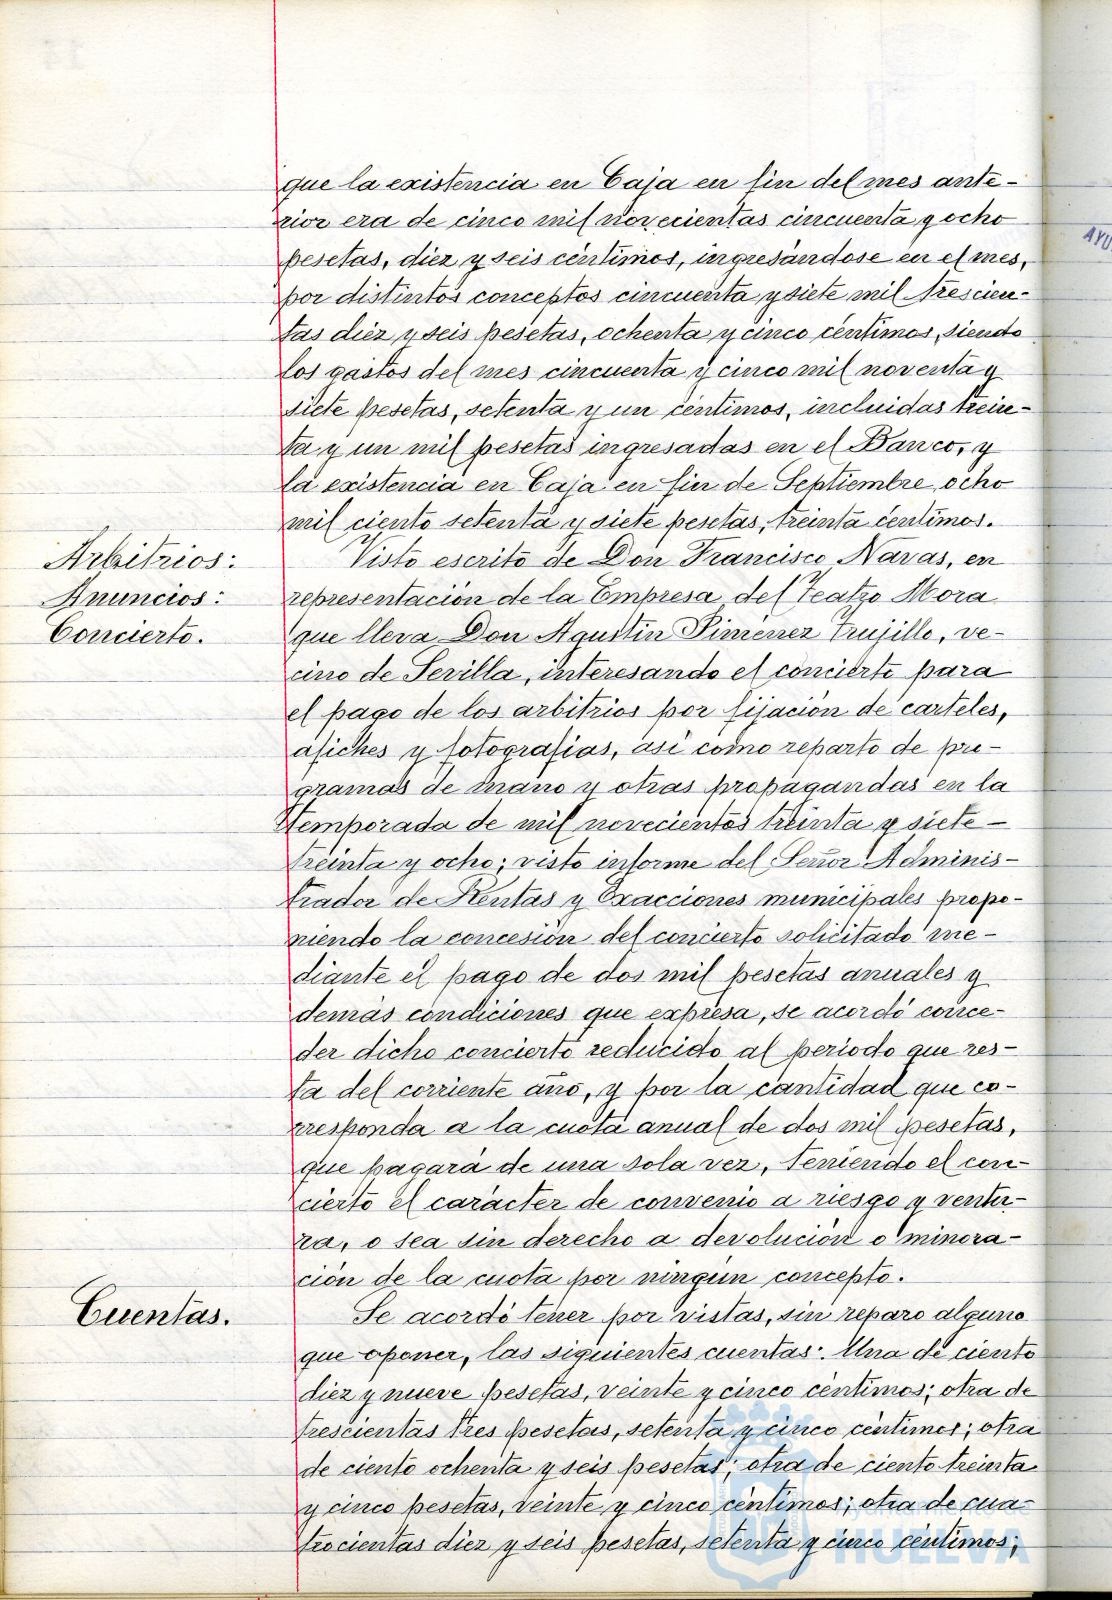 que la existencia en Caja en fin del mes ante-
rior era de cinco mil novecientas cincuenta y ocho
pesetas, diez y seis céntimos, ingresándose en el mes,
por distintos conceptos cincuenta y siete mil trescien-
tas diez y seis pesetas, ochenta y cinco céntimos, siendo
los gastos del mes cincuenta y cinco mil noventa y
siete pesetas, setenta y un céntimos, incluidas trein-
ta y un mil pesetas ingresadas en el Banco, y
la existencia en Caja en fin de Septiembre ocho
mil ciento setenta y siete pesetas, treinta céntimos.
Arbitrios:
Anuncios:
Concierto.
Visto escrito de Don Francisco Navas, en
representación de la Empresa del Teatro Mora
que lleva Don Agustin Pimenez Trujillo, ve-
cino de Sevilla, interesando el concierto para
el pago de los arbitrios por fijación de carteles,
afiches y fotografias, asi como reparto de pro-
gramas de mano y otras propagandas en la
temporada de mil novecientos treinta y siete-
treinta y ocho; visto informe del Señor Adminis-
trador de Rentas y Exacciones municipales propo-
niendo la concesión del concierto solicitado me-
diante el pago de dos mil pesetas anuales y
demás condiciones que expresa, se acordó conce-
der dicho concierto reducido al periodo que res-
ta del corriente año, y por la cantidad que co-
rresponda a la cuota anual de dos mil pesetas,
que pagará de una sola vez, teniendo el con-
cierto el carácter de convenio a riesgo y ventu-
ra, o sea sin derecho a devolución o minora-
ción de la cuota por ningún concepto.
Cuentas.
Se acordó tener por vistas, sin reparo alguno
que oponer, las siguientes cuentas: Una de ciento
diez y nueve pesetas, veinte y cinco céntimos; otra de
trescientas tres pesetas, setenta y cinco céntimos; otra
de ciento ochenta y seis pesetas; otra de ciento treinta
y cinco pesetas, veinte y cinco céntimos; otra de cua-
trocientas diez y seis pesetas, setenta y cinco céntimos;
Ayuntamiento de
HUELVA
AYU